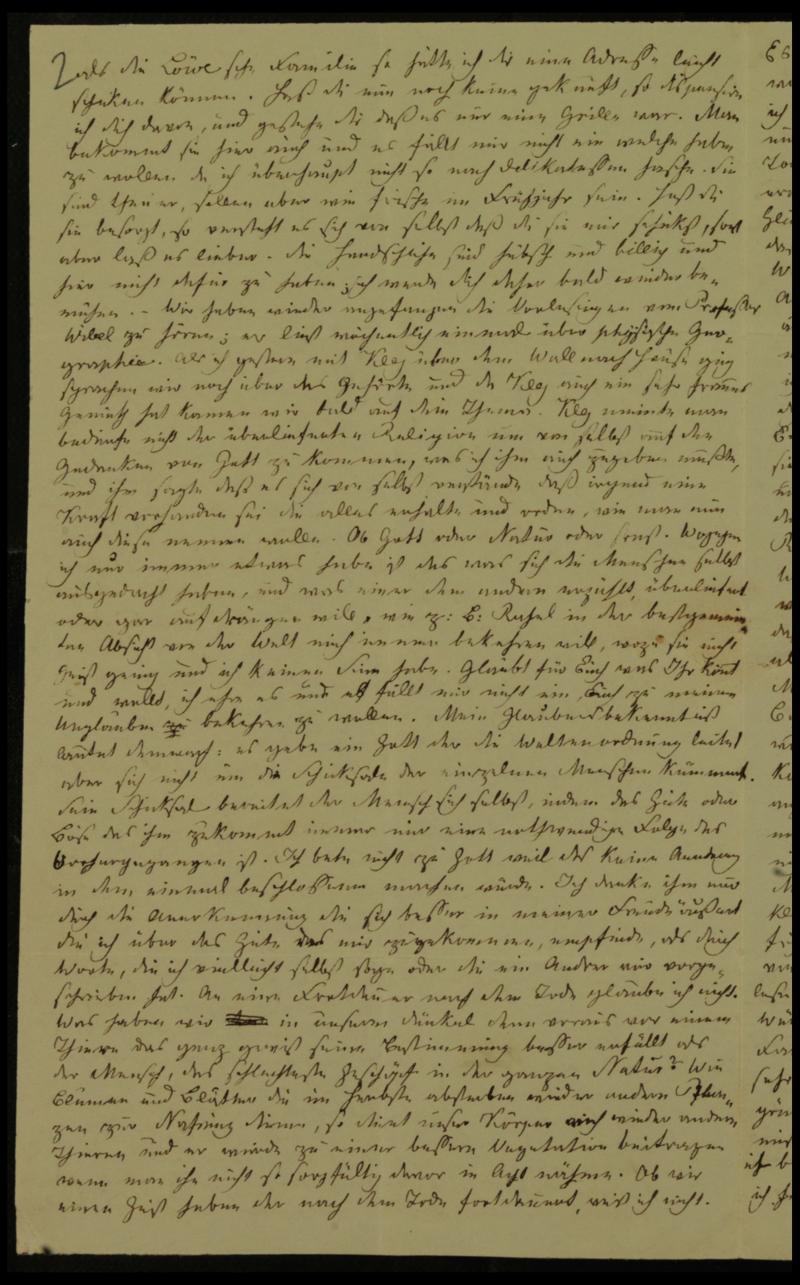 als die Löwe'sche Familie so hätte ich dir eine Adresse leicht
schicken können. Hast du nun noch keine gekauft, so dispensire
ich dich davon, und gestehe dir daß es nur eine Grille war. Man
bekommt sie hier auch und es fällt mir nicht ein welche haben
zu wollen da ich überhaupt nicht so nach Delikatessen hasche. Sie
sind theuer, sollen aber wie frische im Frühjahr sein. Hast du
sie besorgt, so versteht es sich von selbst daß du sie mir schikst, sonst
aber laß es lieber. Die Handschuhe sind hübsch und billig und
hier nicht dafür zu haben; ich werde dich daher bald wieder be-
mühen. – Wir haben wieder angefangen die Vorlesungen vom Professor
Wibel zu hören; er ließt wöchentlich einmal über physische Geo-
graphie. Als ich gestern mit Kley über den Wall nach Hause ging
sprachen wir noch über das Gehörte und da Kley auch ein sehr frommes
Gemüth hat kamen wir bald auf dein Thema. Kley meinte man
bedürfe nicht der überlieferten Religion um von selbst auf den
Gedanken von Gott zu kommen, was ich ihm auch zugeben mußte,
und ihm sagte daß es sich von selbst verstände daß irgend eine
Kraft vorhanden sei die alles erhalte und ordne, wie man nun
auch diese nennen wolle. Ob Gott oder Natur oder sonst. Wogegen
ich nur immer etwas habe ist das was sich die Menschen selbst
ausgedacht haben, und was einer dem andern erzählt, überliefert
oder gar aufdrängen will, wie z: B: Rahel in der bestgemein-
ten Absicht von der Welt mich immer bekehren will, wozu sie nicht
Geist genug und ich keinen Sinn habe. Glaubt für Euch was Ihr könnt
und wollt, ich ehre es und es fällt mir nicht ein, Euch zu meinem
Unglauben bekehren zu wollen. Mein Glaubensbekenntniß
lautet demnach: es gebe ein Gott der die Weltenordnung leitet
aber sich nicht um die Schicksale der einzelnen Menschen kümmert.
Sein Schicksal bereitet der Mensch sich selbst, indem das Gute oder
Böse das ihm zukommt immer nur eine nothwendige Folge des
Vorhergegangen ist. Ich bete nicht zu Gott weil das keine Aenderung
in dem einmal beschlossenen machen würde. Ich danke ihm nur
durch die Anerkennung die sich besser in meiner Freude äußert
die ich über das Gute das mir zugekommen, empfinde, als durch
Worte, die ich vielleicht selbst sage oder die ein Andrer mir vorge-
schrieben hat. An eine Fortdauer nach dem Tode glaube ich nicht.
Was haben wir in unserm Dünkel denn voraus vor einem
Thiere das ganz gewiß seine Bestimmung besser erfüllt als
der Mensch, das schlechteste Geschöpf in der ganzen Natur? Wie
Blumen und Blätter die im Herbste absterben wieder andern Pflan-
zen zur Nahrung dienen, so dient unser Körper auch wieder andern
Thieren und er würde zu einer bessern Vegetation beitragen
wenn man ihn nicht so sorgfältig davor in Acht nähme. Ob wir
einen Geist haben der nach dem Tode fortdauert, weiß ich nicht.